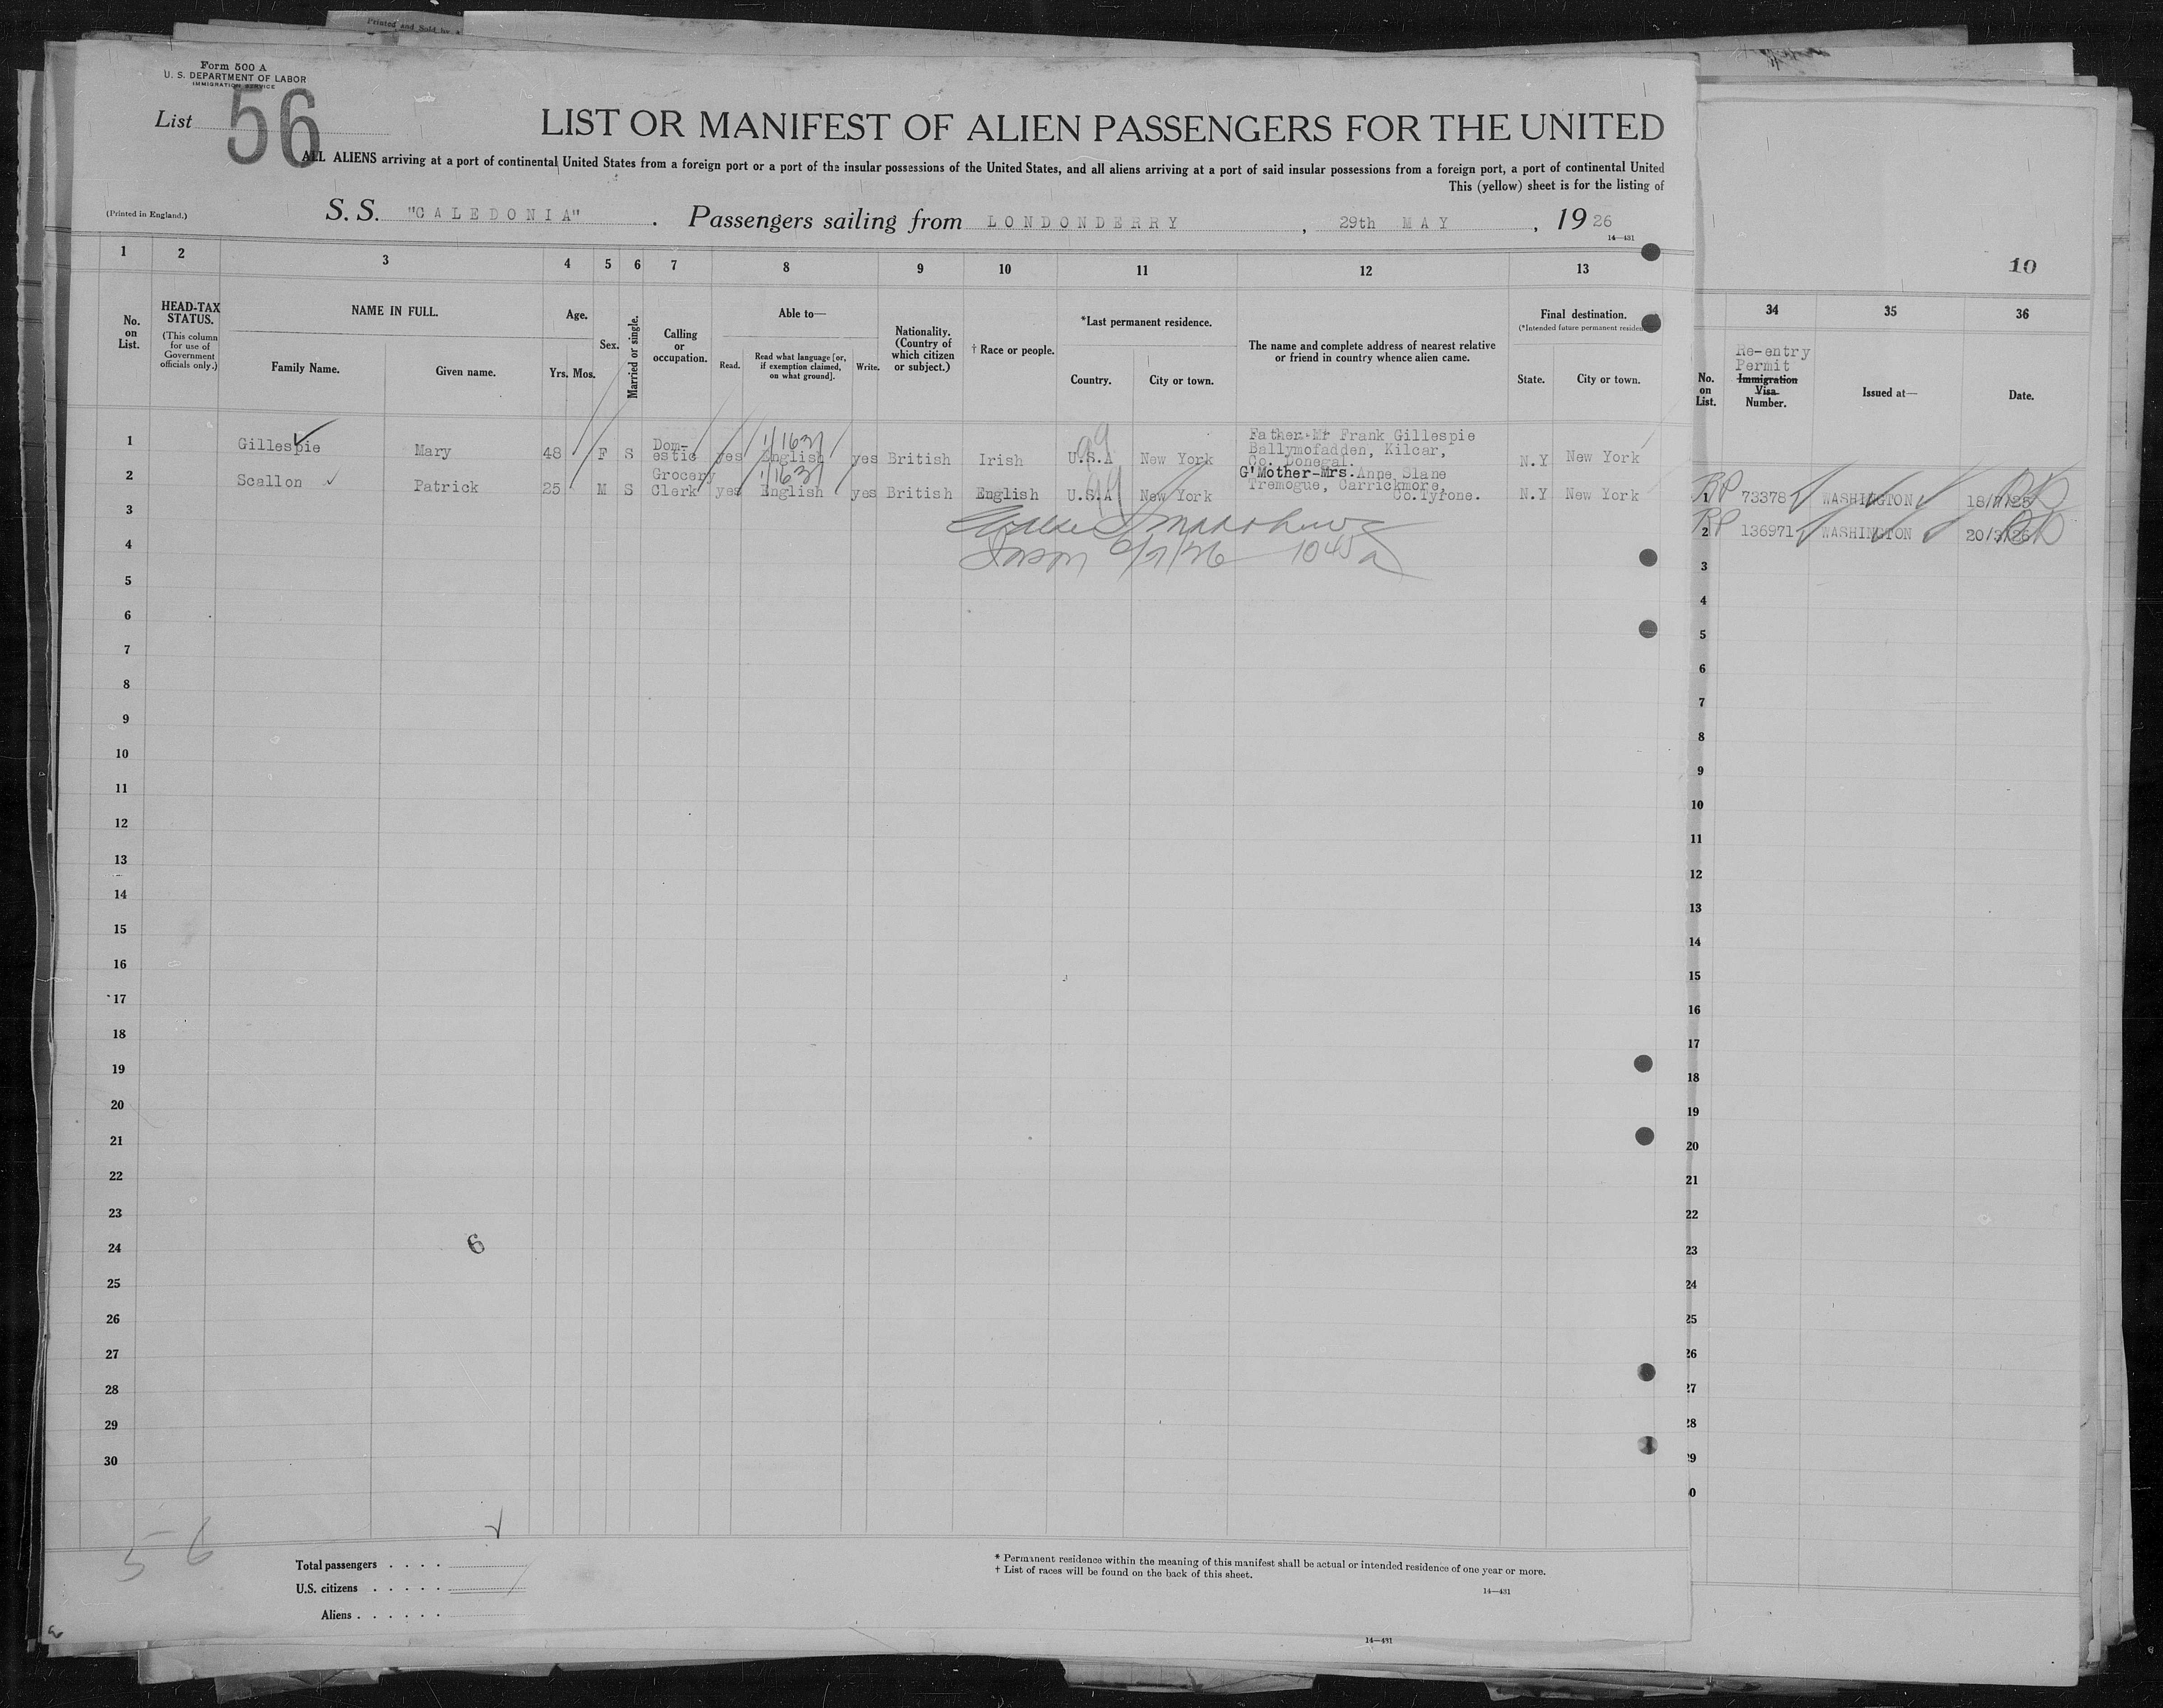 Printed and Sold by
Form 500 A
U. S. DEPARTMENT OF LABOR
IMMIGRATION SERVICE
List 56
LIST OR MANIFEST OF ALIEN PASSENGERS FOR THE UNITED
ALL ALIENS arriving at a port of continental United States from a foreign port or a port of the insular possessions of the United States, and all aliens arriving at a port of said insular possessions from a foreign port, a port of continental United
This (yellow) sheet is for the listing of
(Printed in England.)
S. S. "CALEDONIA" . Passengers sailing from LONDONDERRY , 29th MAY , 19 26
14—431
10
1 2 3 4 5 6 7 8 9 10 11 12 13
34 35 36
No. on List.
HEAD-TAX STATUS.
(This column for use of Government officials only.)
NAME IN FULL.
Family Name. Given name.
Age.
Yrs. Mos.
Sex.
Married or single.
Calling or occupation.
Able to—
Read.
Read what language [or, if exemption claimed, on what ground].
Write.
Nationality. (Country of which citizen or subject.)
† Race or people.
*Last permanent residence.
Country. City or town.
The name and complete address of nearest relative or friend in country whence alien came.
Final destination.
(*Intended future permanent residen
State. City or town.
No. on List.
Re-entry
Permit
Immigration
Visa
Number.
Issued at—
Date.
1 Gillespie Mary 48 F S Dom-estic yes English yes British Irish U.S.A New York Father-Mr Frank Gillespie Ballymofadden, Kilcar, Co. Donegal. N.Y New York
2 Scallon Patrick 25 M S Grocery Clerk yes English yes British English U.S.A New York G'Mother-Mrs. Anne Slane Tremogue, Carrickmore, Co.Tyrone. N.Y New York
RP 1 73378 WASHINGTON 18/7/25
RP 2 136971 WASHINGTON 20/3/26
6/7/26 1045a
3
4
5
6
7
8
9
10
11
12
13
14
15
16
17
18
19
20
21
22
23
24
25
26
27
28
29
30
3
4
5
6
7
8
9
10
11
12
13
14
15
16
17
18
19
20
21
22
23
24
25
26
27
28
29
0
6
56
Total passengers . . . .
U.S. citizens . . . . .
Aliens . . . . . .
* Permanent residence within the meaning of this manifest shall be actual or intended residence of one year or more.
† List of races will be found on the back of this sheet.
14—431
14—431